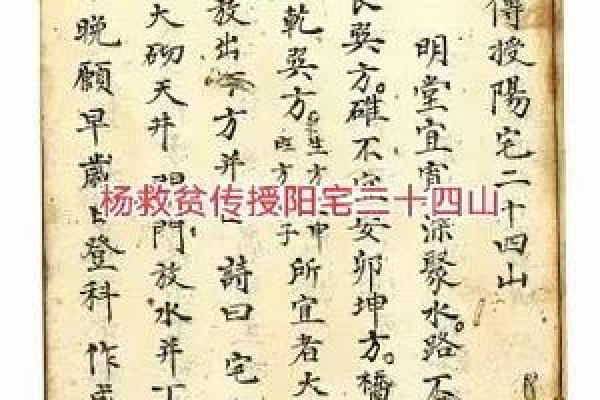 傳授陽宅二十四山
明堂宜寬深聚水。路
巽方。碓不宜安卯坤方。橋
乾巽方。生方申旺方子所宜者大
放出方并 詩曰宅
大砌天井 門放水并
晚願早歲登科 作
杨救贫传授阳宅二十四山